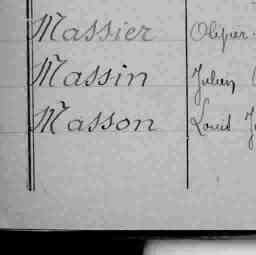 Massier Olivier
Massin Julien
Masson Louis